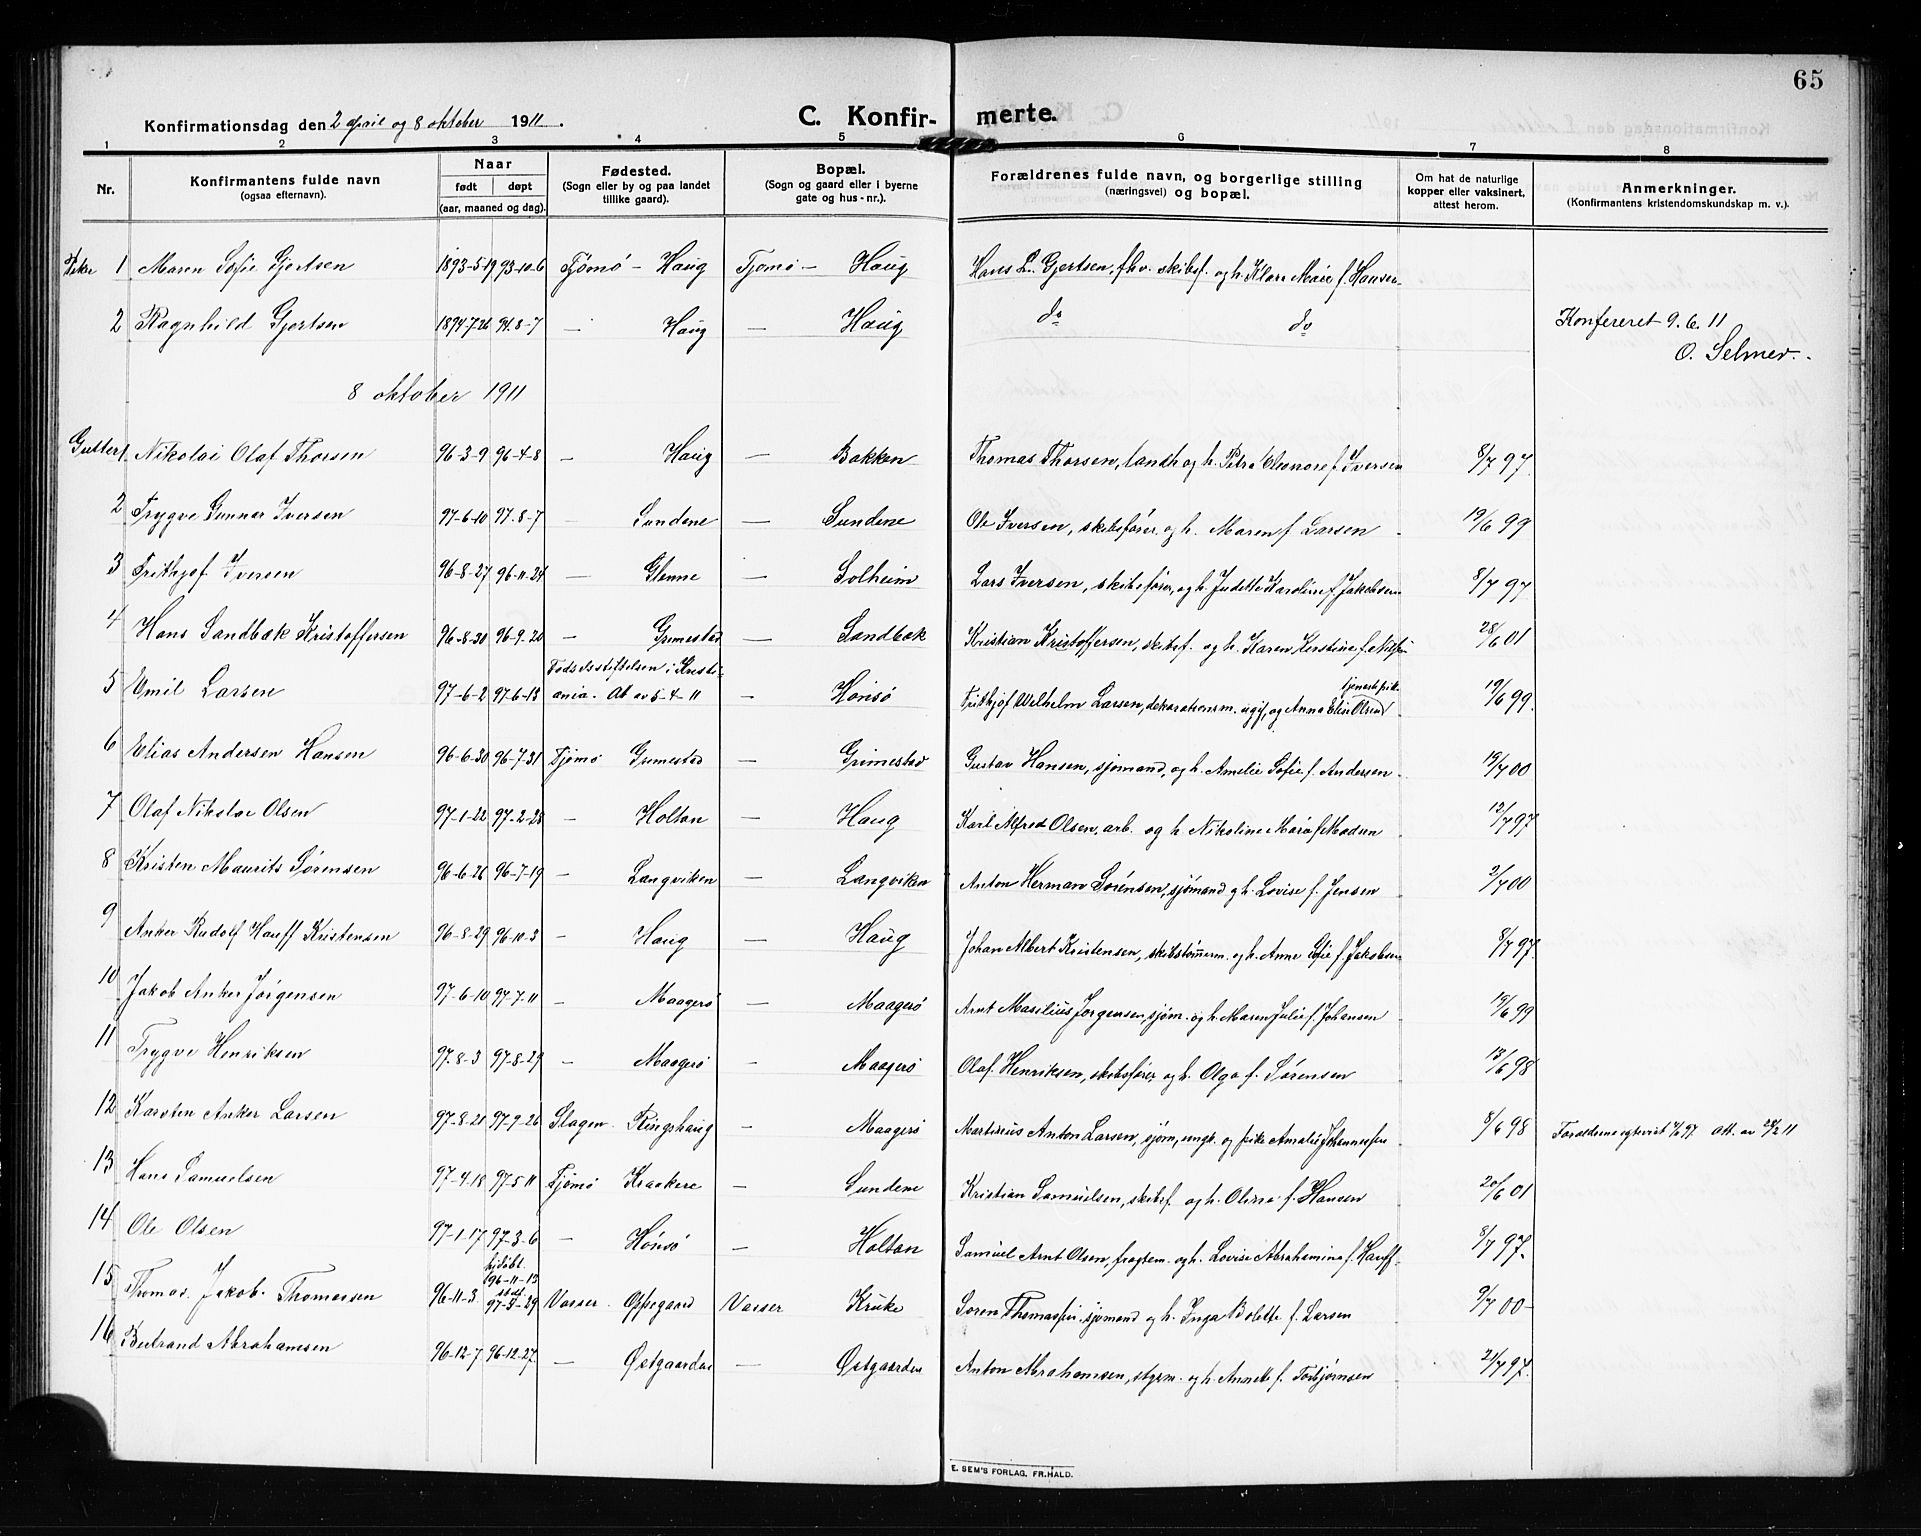 65
Konfirmationsdag den 2 april og 8 oktober 1911.
C. Konfir- merte.
1 2 3 4 5 6 7 8
Nr. Konfirmantens fulde navn (ogsaa efternavn). Naar født døpt (aar, maaned og dag). Fødested. (Sogn eller by og paa landet tillike gaard). Bopæl. (Sogn og gaard eller i byerne gate og hus-nr.). Forældrenes fulde navn, og borgerlige stilling (næringsvei) og bopæl. Om hat de naturlige kopper eller vaksinert, attest herom. Anmerkninger. (Konfirmantens kristendomskundskap m. v.).
Piker 1 Maren Sofie Gjertsen 1893-5-19 93-10-6 Tjömö - Haug Tjomö - Haug Hans L. Gjertsen, fhv. skibsf. og h. Klara Marie f. Hansen
2 Ragnhild Gjertsen 1894-7-26 94-8-7 - Haug - Haug do do Konfereret 9.6.11
O. Selmer.
8 oktober 1911
Gutter 1 Nikolai Olaf Thorsen 96-3-9 96-4-8 - Haug - Bakken Thomas Thorsen, landh og h. Petra Eleonore f. Iversen 8/7 97.
2 Trygve Gunnar Iversen 97-6-10 97-8-7 - Sundene - Sundene Ole Iversen, skibsfører, og h. Maren f. Larsen 19/6 99
3 Frithjof Iversen 96-8-27 96-11-24 - Glenne - Solheim Lars Iversen, skibsfører, og h. Judette Karoline f. Jakobsen 8/7 97
4 Hans Sandbæk Kristoffersen 96-8-30 96-9-20 - Grimestad - Sandbæk Kristian Kristoffersen, skibsf. og h. Karen Kerstine f. 28/6 01
5 Emil Larsen 97-6-2 97-6-13 Fødselsstiftelsen i Kristiania. At av 5-4-11 - Hønsö Frithjof Wilhelm Larsen, dekorationsm. ugif, og tjenestepik. Anna Elise Olsen 19/6 99.
6 Elias Andersen Hansen 96-6-30 96-7-31 Tjømø Grimestad - Grimestad Gustav Hansen, sjømand, og h. Amelie Sofie f. Andersen 19/7 00
7 Olaf Nikolai Olsen 97-1-22 97-2-28 - Holtan - Haug Karl Alfred Olsen, arb. og h. Nikoline Mara f. Madsen 12/7 97
8 Kristen Maurits Sørensen 96-6-26 96-7-19 - Langviken - Langviken Anton Herman Sørensen, sjømand og h. Lovise f. Jensen 2/7 00
9 Anker Rudolf Hauff Kristensen 96-8-29 96-10-3 - Haug - Haug Johan Albert Kristensen, skibstømerm. og h. Anne Sofie f. Jakobsen 8/7 97.
10 Jakob Anker Jørgensen 97-6-10 97-7-11 - Maagerø - Maagerø Arnt Masilius Jørgensen, sjøm. og h. Maren Julie f. Johansen 19/6 99
11 Trygve Henriksen 97-8-3 97-8-29 - Maagerø - Maagerø Olaf Henriksen, skibsfører, og h. Olga f. Sørensen 13/6 98
12 Karsten Anker Larsen 97-8-21 97-9-26 Slagen Ringshaug - Maagerø Martinius Anton Larsen, sjøm, ungk. og pike Amalie Johannessen 8/6 98 Forældrene egteviet 97 Att. av 11
13 Hans Samuelsen 97-4-18 97-5-11 Tjømø Kraakere - Sundene Kristian Samuelsen, skibsf. og h. Olava f. Hansen 20/6 01
14 Ole Olsen 97-1-17 97-3-6 - Hönsö - Holtan Samuel Arnt Olsen, fragtem. og h. Lovise Abrahamine f. Hauff 8/7 97.
15 Thomas Jakob Thomassen 96-11-3 hjdøbt 96-11-13 stadf. 97-3-29 Vasser Oppegaard Vasser Kruke Søren Thomassen, sjømand og h. Inga Bolette f. Larsen 9/7 00
16 Bertrand Abrahamsen 96-12-7 96-12-27 - Østgaarden - Østgaarden Anton Abrahamsen, styrm. og h. Annette f. Torbjørnsen 21/7 97.
E. SEM'S FORLAG, FR.HALD.